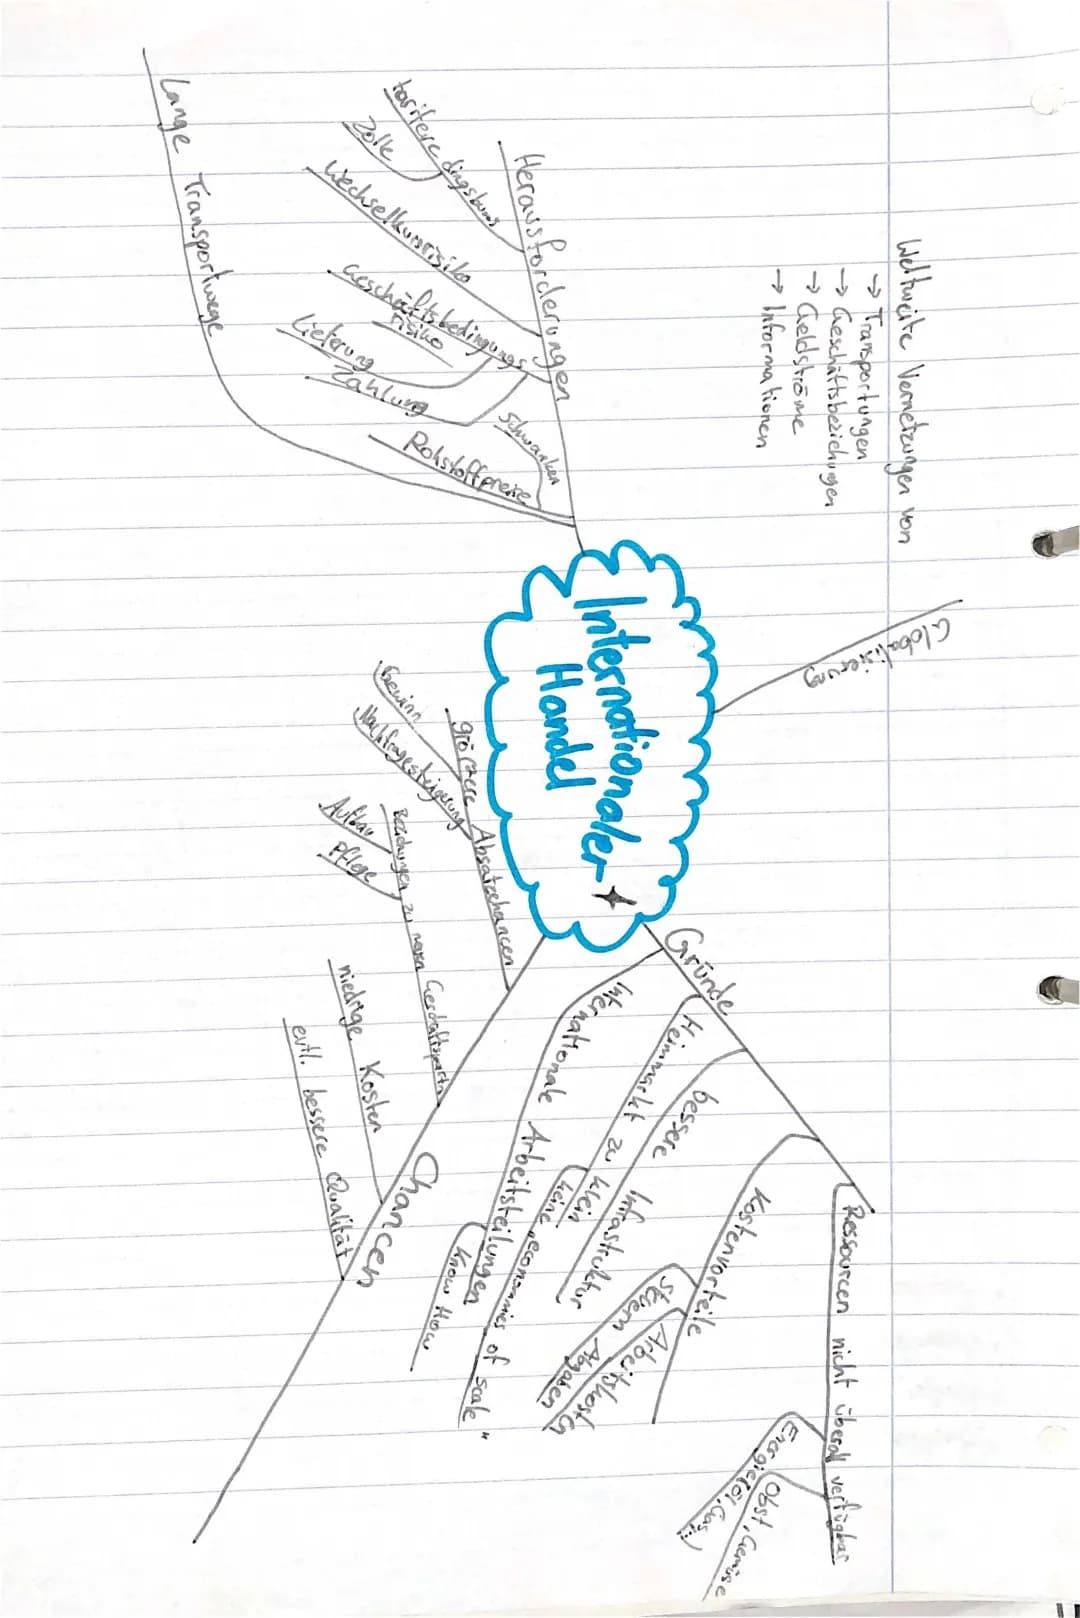 Weltweite Vernetzungen von
→ Transportungen
→ Geschäftsbeziehungen
→ Geldströme
→ Informationen
Globalisierung
Internationaler
Handel
Herausforderungen
tarifere dingsbums
Zölle
Wechselkursrisiko
Geschäftsbedingungs
risiko
Lieferung
Zahlung
schwanken
Rohstoffpreise
Lange Transportwege
Gründe
Ressourcen nicht überall verfügbar
Energie(Öl, Gas,...)
Obst, Gemüse
Kostenvorteile
Steuern Abgaben
Arbeitskosten
bessere Infrastruktur
Heimmarkt zu klein
keine „economies of scale"
Internationale Arbeitsteilungen
Know How
Chancen
größere Absatzchancen
Gewinn
Nachfragesteigerung
Beziehungen zu neuen Geschäftspartn
Aufbau
Pflege
niedrige Kosten
evtl. bessere Qualität